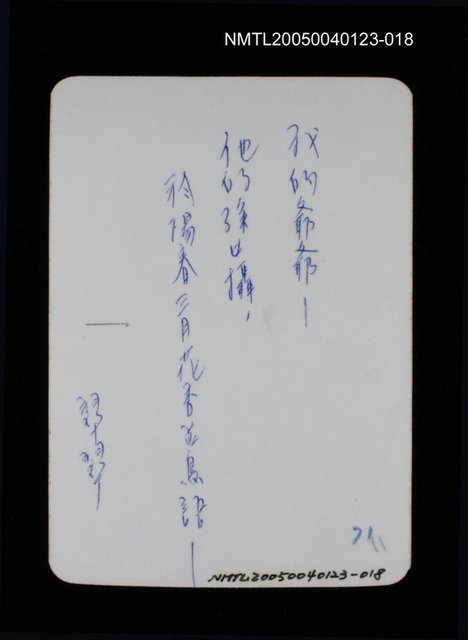 NMTL20050040123-018
我的爺爺—
他的孫女攝,
陽春三月花香鳥語—
翠翠
71
NMTL20050040123-018